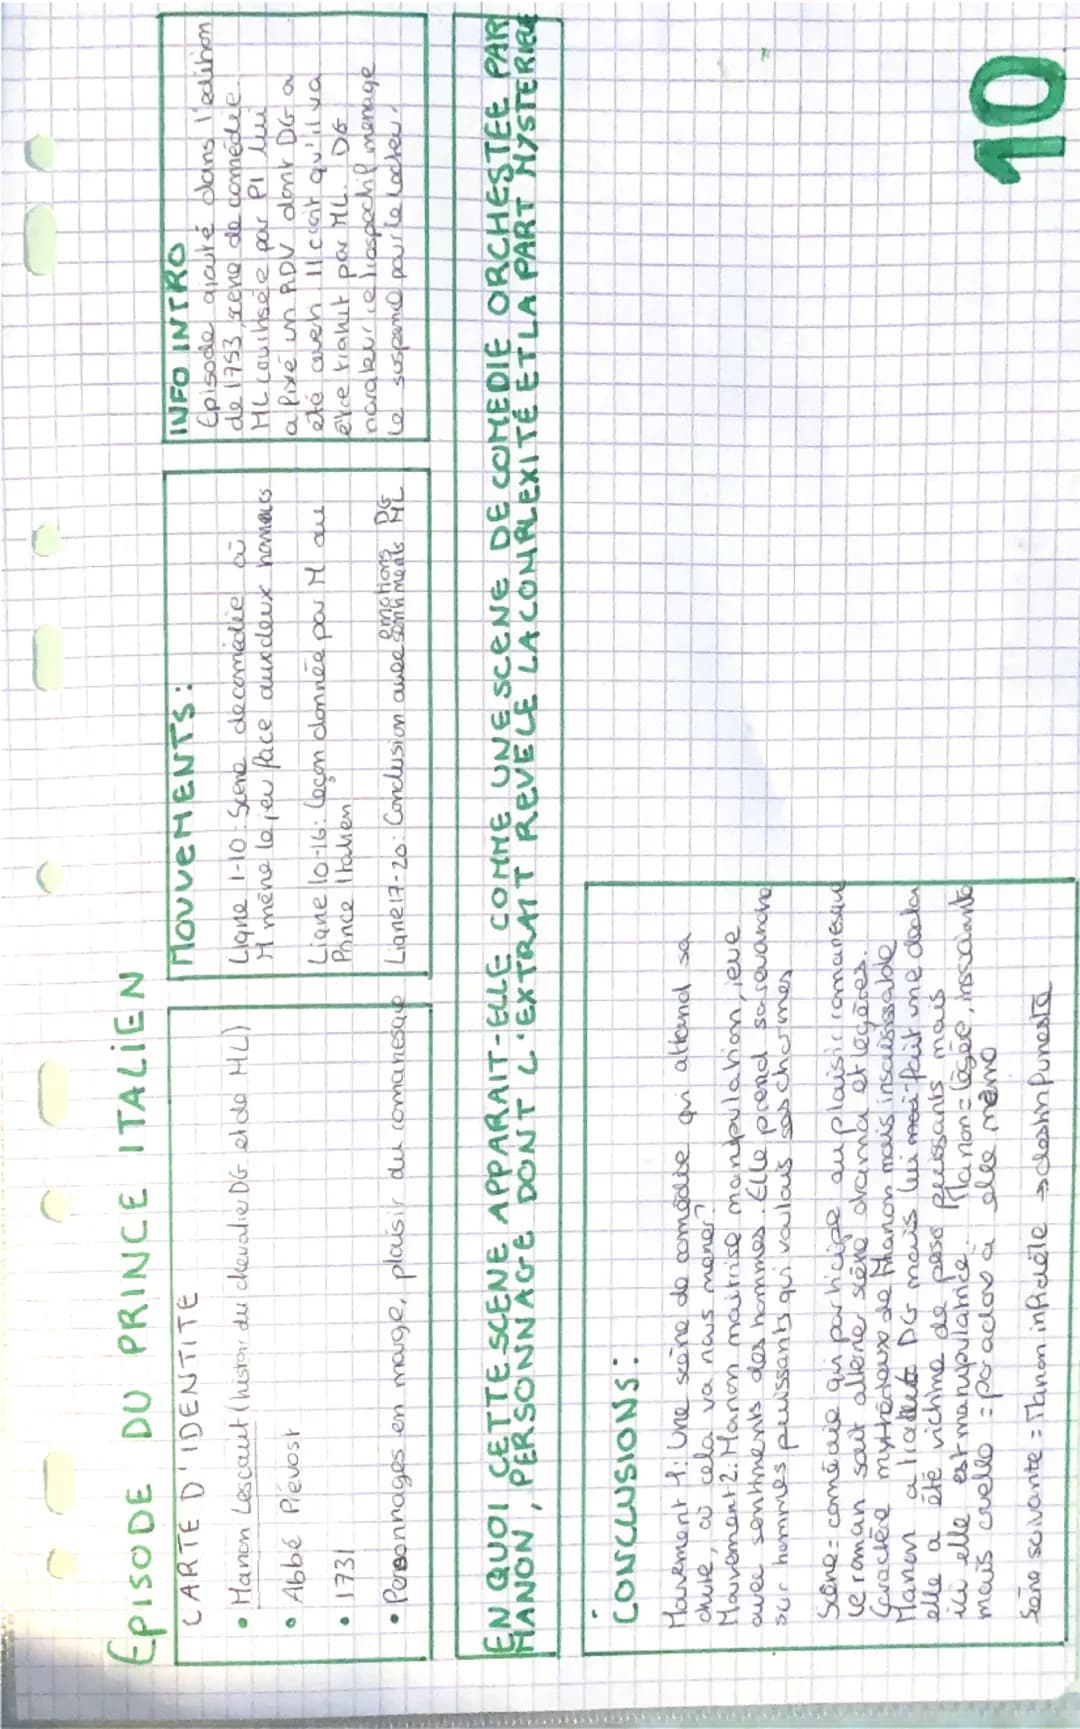 EPISODE DU PRINCE ITALIEN
CARTE D'IDENTITE
• Manon Lescaut (histoir du chevalie DG et de ML)
• Abbé Prévost
• 1731
• Personnages en marge, plaisir du romanesque
MOUVEMENTS:
Ligne 1-10: Scène de comédie où
M mène le jeu face aux deux hommes
Ligne 10-16: leçon donnée par M au
Prince Italien
Ligne 17-20: Conclusion avec émotions DG
sentiments ML
INFO INTRO
Episode ajouté dans l'edition
de 1753, scène de comédie.
ML courtisée par PI lui
a fixé un RDV dont DG a
été averti. Il croit qu'il va
être trahit par ML. DG
narrateur retrospectif menage
le suspens pour le lecteur.
EN QUOI CETTE SCENE APPARAIT-ELLE COMME UNE SCENE DE COMEDIE ORCHESTEE PAR
MANON, PERSONNAGE DONT L'EXTRAIT REVELE LA COMPLEXITÉ ET LA PART MYSTERIEUE
CONCLUSIONS:
Mouvement 1: Une scène de comédie qui attend sa
chute, où cela va nous mener?
Mouvement 2: Manon maitrise manipulation, jeue
avec sentiments des hommes. Elle prend sa revanche
sur hommes puissants qui voulais ses charmes
Scène = comédie qui participe au plaisir romanesque
le roman sait alterner scène drama et légères.
Caractère mystérieux de Manon mais insaisissable
Manon a DG mais lui fait une
elle a été victime de puissants mais
ici elle est manipulatrice. Manon = légère, inssouciante
mais cruelle = paradoxe à elle même
Scène suivante = Manon infidèle → destin funeste
10